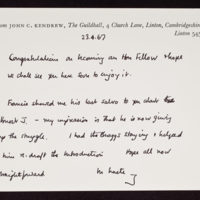 from JOHN C. KENDREW, The Guildhall, 4 Church Lane, Linton, Cambridgeshire
Linton 545
23.4.67
Congratulations on becoming an Hon Fellow & hope
we shall see you here soon to enjoy it.
Francis showed me his last salvo to you about
Honest J. - my impression is that he is now firmly
up the struggle. I had the Braggs staying & helped
him re-draft the introduction Hope all now
straightforward
In haste
J